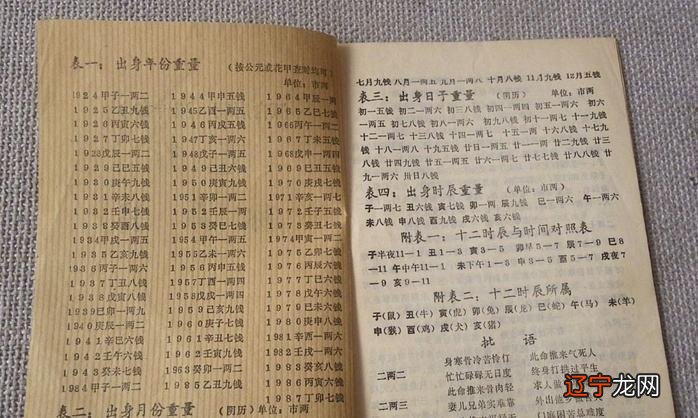 表一：出身年份重量
（按公元或花甲查对均可）
单位：市两
1924甲子一两二 1944甲申五钱 1964甲辰一两
1925乙丑九钱 1945乙酉一两五 1965乙巳七钱
1926丙寅六钱 1946丙戌五钱 1966丙午一两二
1927丁卯七钱 1947丁亥一两六 1967丁未五钱
1928戊辰一两二 1948戊子一两五 1968戊申一两四
1929己巳五钱 1949己丑六钱 1969己酉五钱
1930庚午九钱 1950庚寅九钱 1970庚戌七钱
1931辛未八钱 1951辛卯一两二 1971辛亥一两七
1932壬申七钱 1952壬辰一两 1972壬子五钱
1933癸酉八钱 1953癸巳七钱 1973癸丑七钱
1934甲戌一两五 1954甲午一两五 1974甲寅一两二
1935乙亥九钱 1955乙未一两六 1975乙卯七钱
1936丙子一两六 1956丙申五钱 1976丙辰六钱
1937丁丑八钱 1957丁酉一两四 1977丁巳六钱
1938戊寅八钱 1958戊戌一两四 1978戊午六钱
1939己卯一两九 1959己亥九钱 1979己未六钱
1940庚辰一两二 1960庚子七钱 1980庚申八钱
1941辛巳六钱 1961辛丑七钱 1981辛酉一两六
1942壬午六钱 1962壬寅九钱 1982壬戌一两
1943癸未七钱 1963癸卯一两二 1983癸亥七钱
1984甲子一两二 1985乙丑九钱 1986丙寅六钱
1987丁卯七钱
表二：出身月份重量 （阴历）单位：市两
七月九钱 八月一两五 九月一两八 十月八钱 11月九钱 12月五钱
表三：出身日子重量 （阴历） 单位：市两
初一五钱 初二一两 初三八钱 初四一两五 初五一两六 初六
一两五 初七八钱 初八一两六 初九八钱 初十一两六 十一九钱
十二一两七 十三八钱 十四一两七 十五一两 十六八钱 十七九
钱 十八一两八 十九五钱 廿日一两五 廿一一两 廿二九钱 廿三
八钱 廿四九钱 廿五一两五 廿六一两八 廿七七钱 廿八八钱 廿
九一两六 卅日六钱
表四：出身时辰重量 （单位：市两）
子一两六 丑六钱 寅七钱 卯一两 辰九钱 巳一两六 午一两
未八钱 申八钱 酉九钱 戌六钱 亥六钱
附表一：十二时辰与时间对照表
子半夜11—1 丑1—3 寅3—5 卯早5—7 辰7—9 巳9
—11 午中午11—1 未下午1—3 申3—5 酉5—7 戌夜7
—9 亥9—11
附表二：十二时辰所属
子（鼠）丑（牛）寅（虎）卯（兔）辰（龙）巳（蛇）午（马）未（羊）
申（猴）酉（鸡）戌（犬）亥（猪）
批 语
身寒骨冷苦怜仃 此命推来气死人
二两二 忙忙碌碌无日度 终身打拱过平生
此命推来骨肉轻 求人
二两三 妻儿兄弟实难靠 外出
辽宁龙网